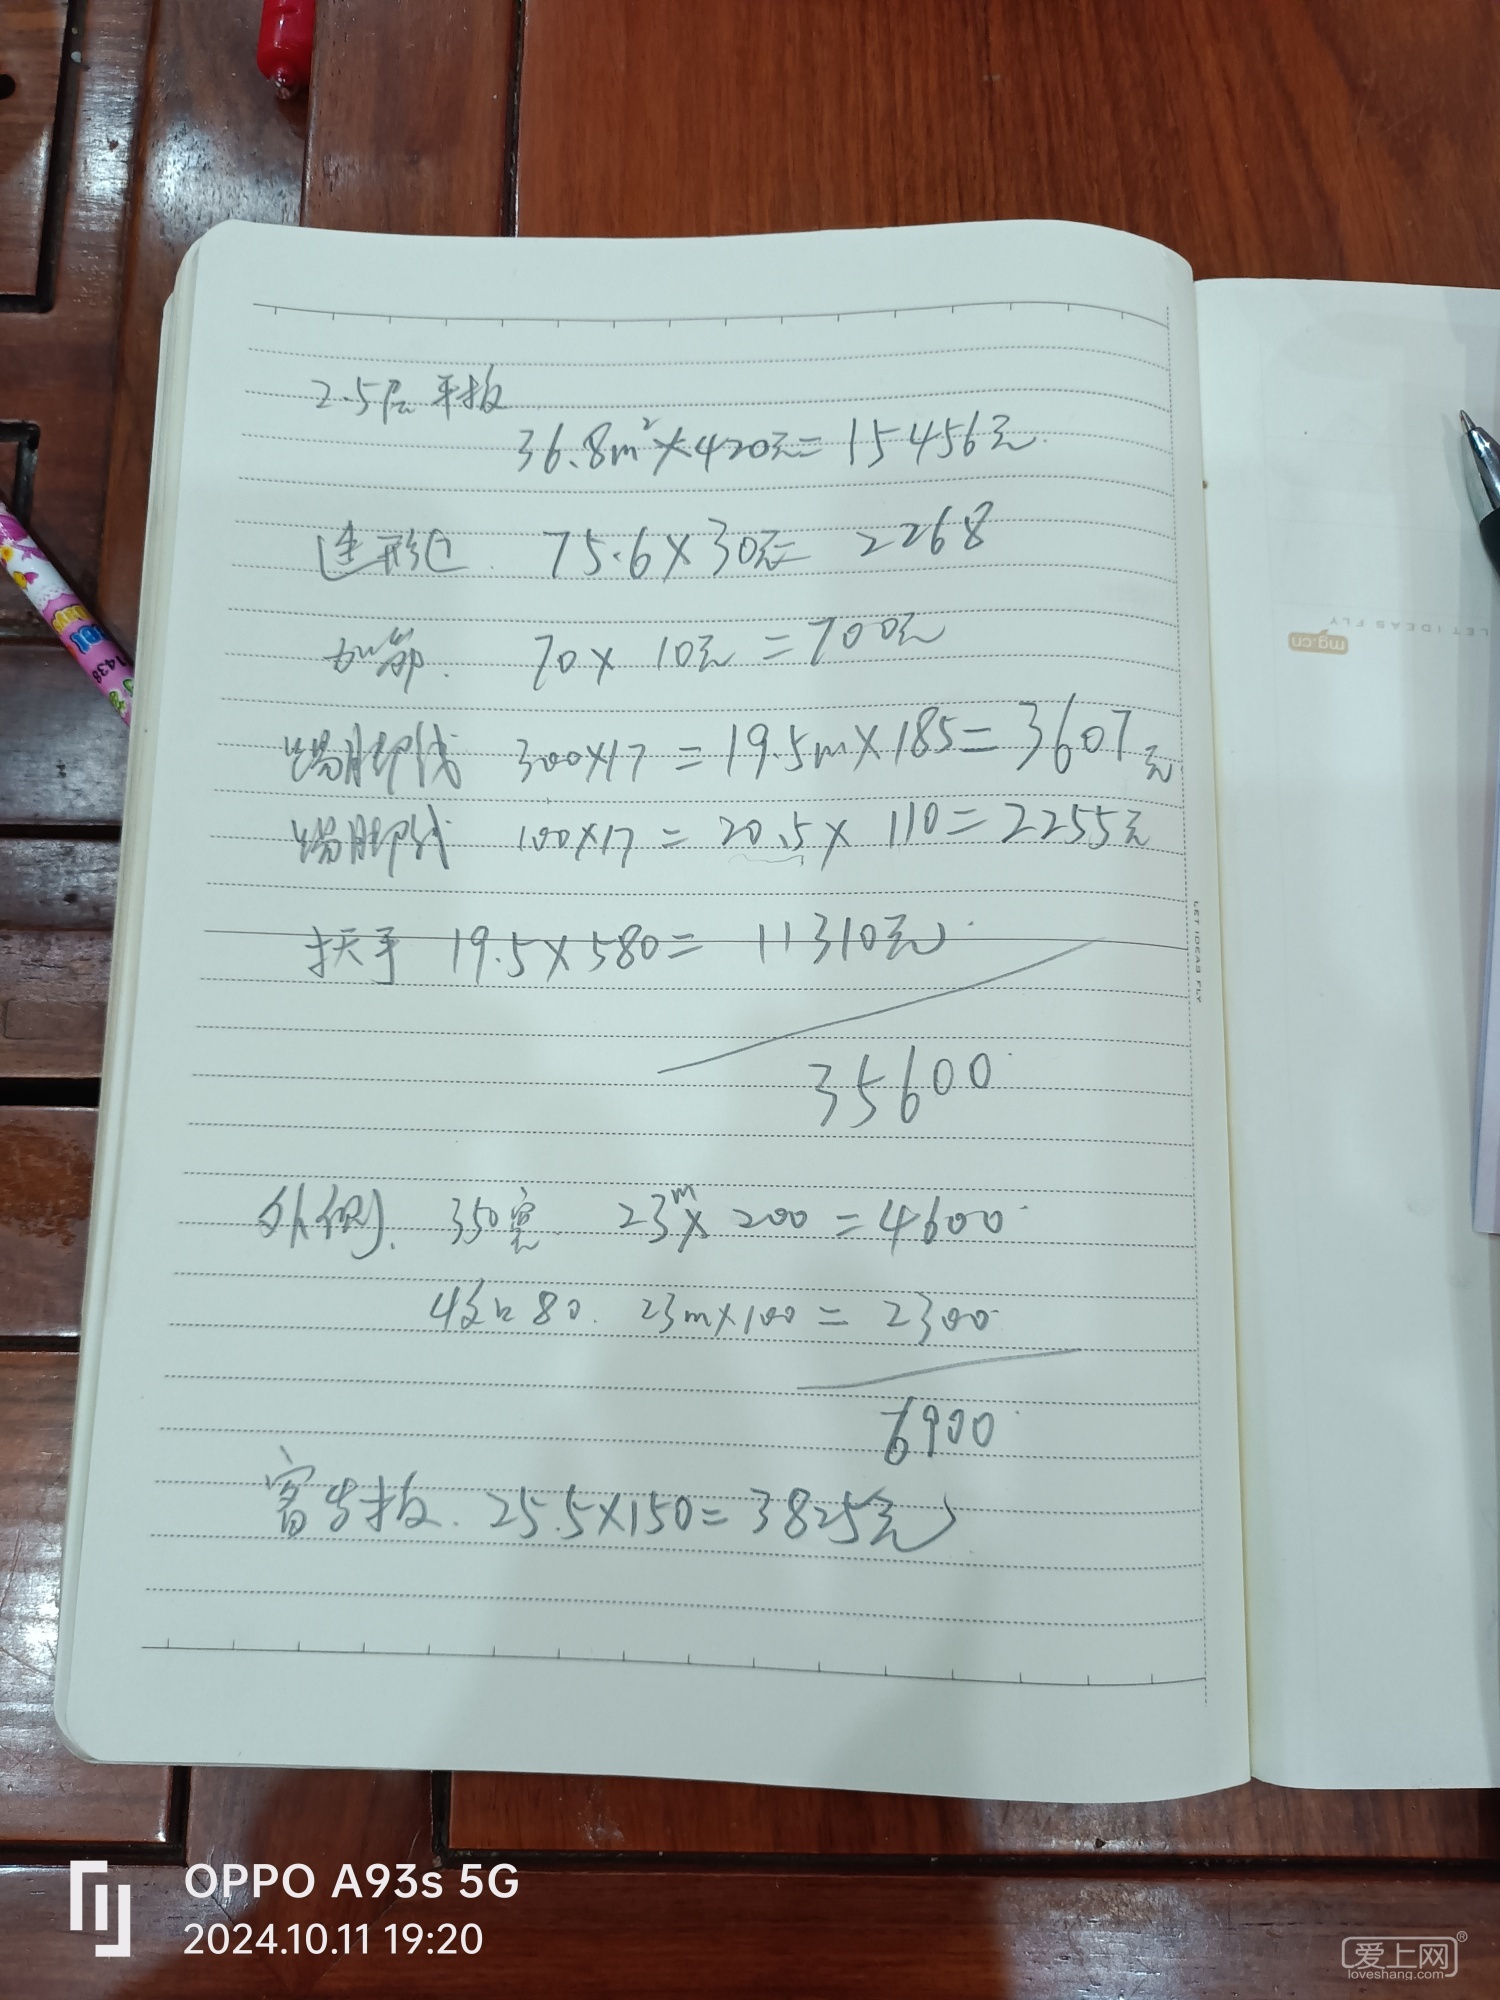 2.5层平板
36.8m²×420元=15456元
造形边 75.6×30元= 2268
加筋. 70×10元=700元
踢脚线 300×17 = 19.5m×185=3607元
踢脚线 100×17 = 20.5× 110=2255元
扶手 19.5×580= 11310元
35600
外侧. 350宽 23m× 200 =4600
收口80. 23m×100 = 2300
6900
窗台板. 25.5×150=3825元
LET IDEAS FLY
mg.cn
LET IDEAS FLY
1438
OPPO A93s 5G
2024.10.11 19:20
爱上网®
loveshang.com